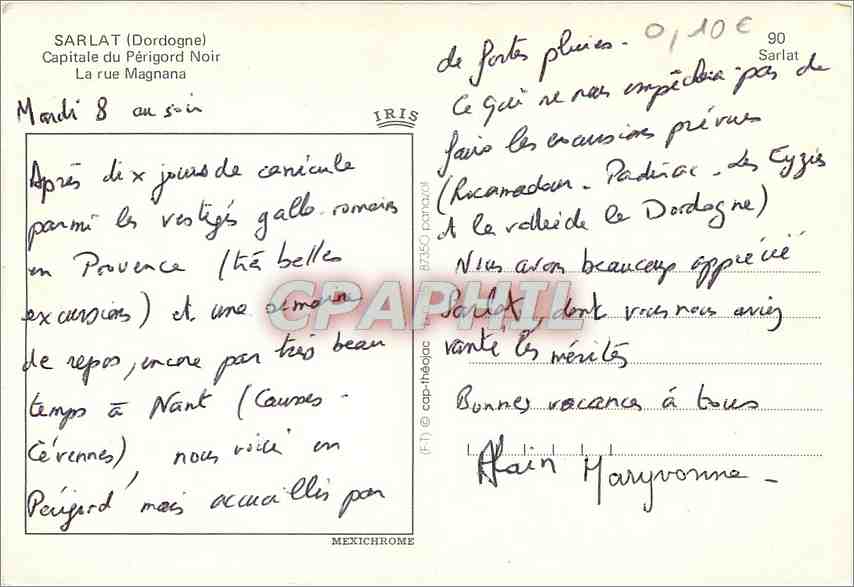 SARLAT (Dordogne)
Capitale du Périgord Noir
La rue Magnana
Mardi 8 au soir
IRIS
Après dix jours de canicule
parmi les vestiges gallo-romains
en Provence (très belles
excursions) et une semaine
de repos, encore par très beau
temps à Nant (Causses -
Cévennes), nous voilà en
Périgord mais accueillis par
MEXICHROME
(F-T) © cap-théojac 87350 panazol
CPAPHIL
0,10€
90
Sarlat
de fortes pluies.
Ce qui ne nous empêchera pas de
faire les excursions prévues
(Rocamadour - Padirac - Les Eyzies
et la vallée de la Dordogne)
Nous avons beaucoup apprécié
Sarlat, dont vous nous aviez
vanté les mérites
Bonnes vacances à tous
Alain Maryvonne -